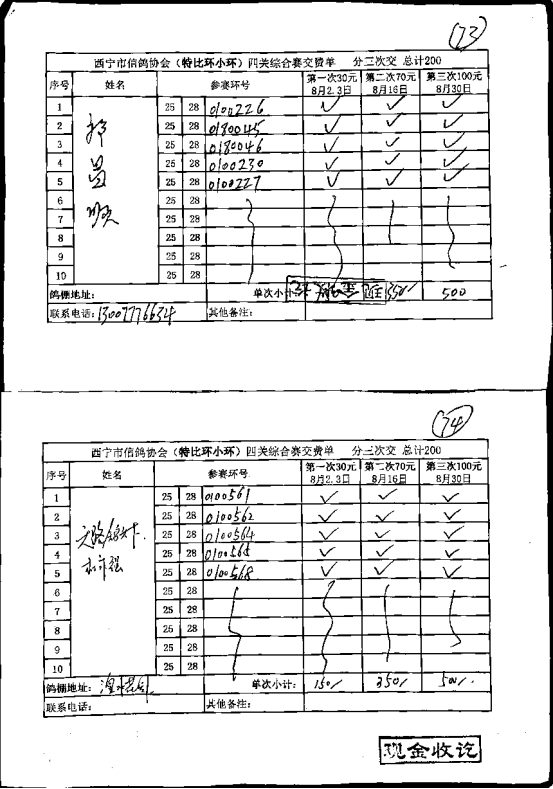 (73)
西宁市信鸽协会（特比环小环）四关综合赛交费单 分三次交 总计200
序号 姓名 参赛环号 第一次30元 8月2.3日 第二次70元 8月16日 第三次100元 8月30日
1 25 28 0100226 ✓ ✓ ✓
2 25 28 0180045 ✓ ✓ ✓
3 25 28 0180046 ✓ ✓ ✓
4 25 28 0100230 ✓ ✓ ✓
5 25 28 0100227 ✓ ✓ ✓
6 25 28
7 25 28
8 25 28
9 25 28
10 25 28
鸽棚地址： 单次小计 350/ 500
联系电话：13007776634 其他备注：
(74)
西宁市信鸽协会（特比环小环）四关综合赛交费单 分三次交 总计200
序号 姓名 参赛环号 第一次30元 8月2.3日 第二次70元 8月16日 第三次100元 8月30日
1 25 28 0100561 ✓ ✓ ✓
2 25 28 0100562 ✓ ✓ ✓
3 25 28 0100564 ✓ ✓ ✓
4 25 28 0100565 ✓ ✓ ✓
5 25 28 0100568 ✓ ✓ ✓
6 25 28
7 25 28
8 25 28
9 25 28
10 25 28
鸽棚地址： 单次小计： 150/ 350/ 500/.
联系电话： 其他备注：
现金收讫